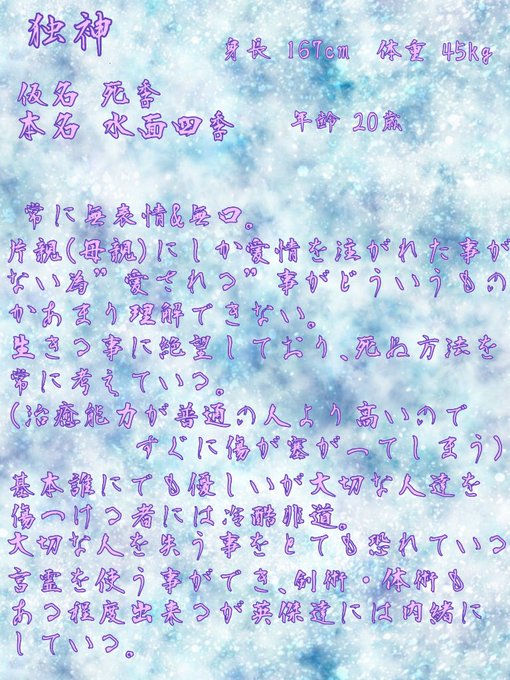 独神
身長 167cm 体重 45kg
仮名 死番
本名 水面四番 年齢 20歳
常に無表情&無口。
片親(母親)にしか愛情を注がれた事が
ない為”愛される”事がどういうもの
かあまり理解できない。
生きる事に絶望しており、死ぬ方法を
常に考えている。
(治癒能力が普通の人より高いので
すぐに傷が塞がってしまう)
基本誰にでも優しいが大切な人達を
傷つける者には冷酷非道。
大切な人を失う事をとても恐れている
言霊を使う事ができ、剣術・体術も
ある程度出来るが英傑達には内緒に
している。